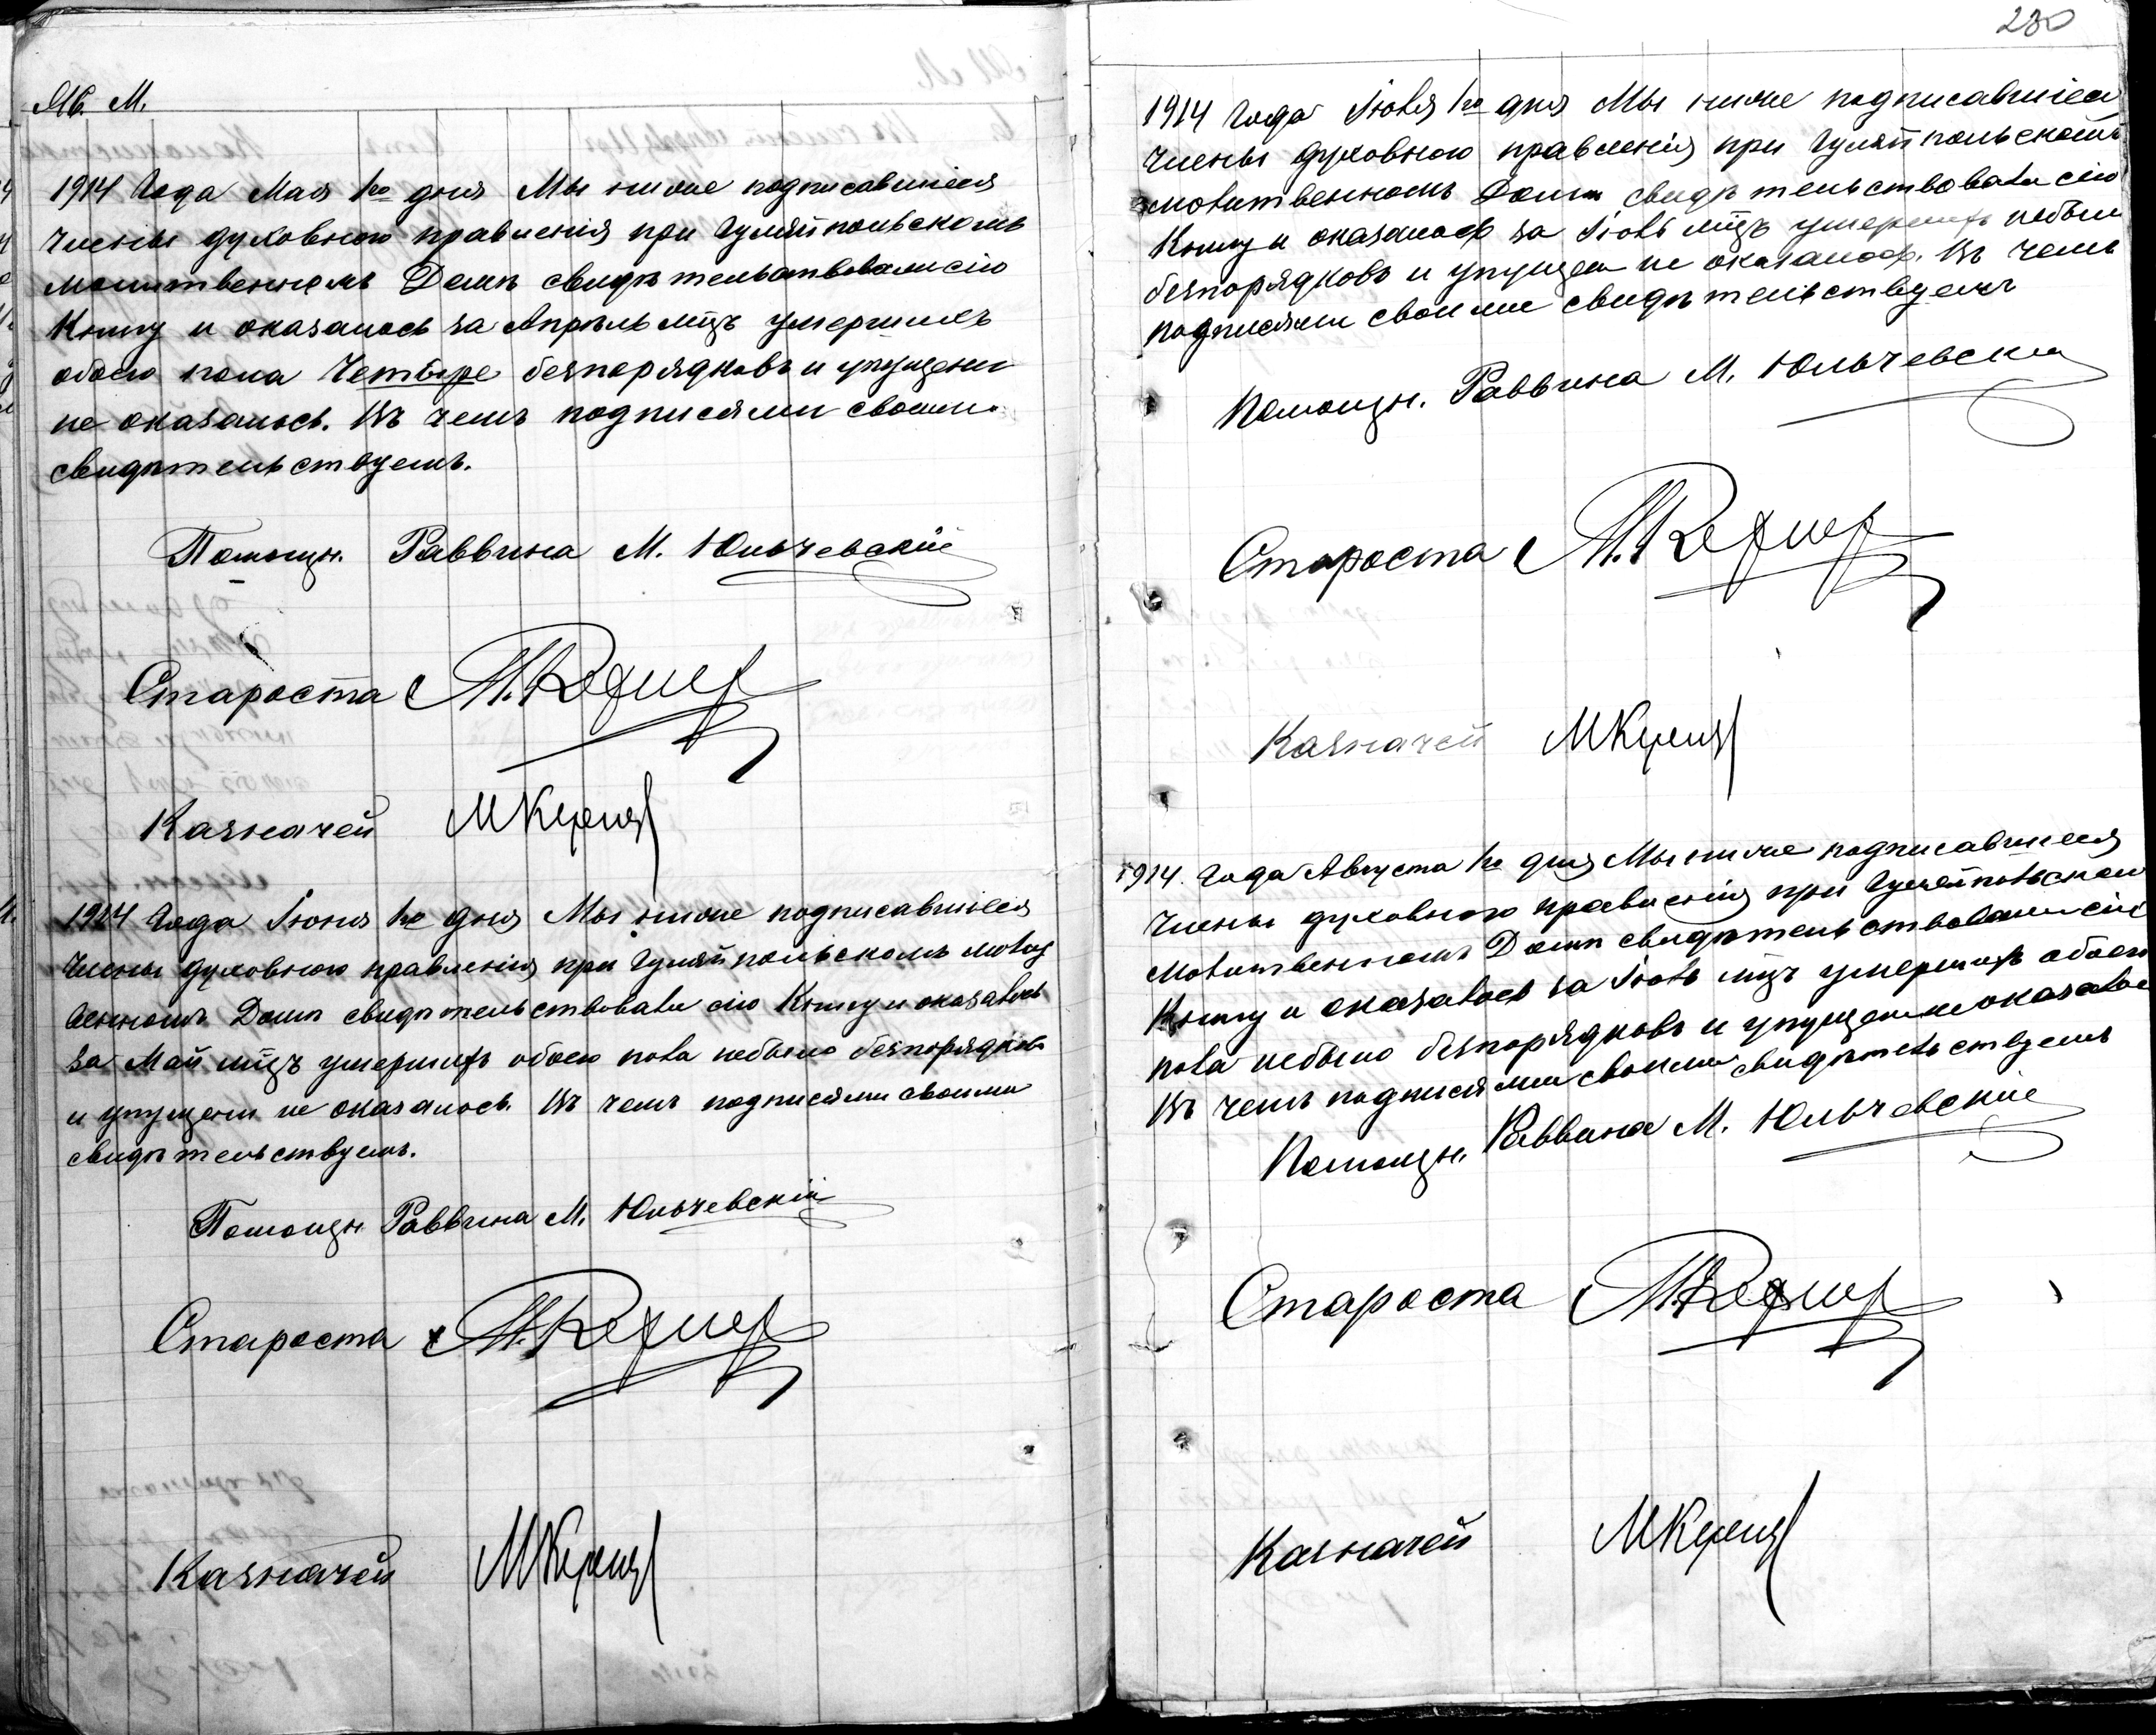 М. М.
1914 Года Мая 1го дня Мы ниже подписавшіеся
Члены духовного правленія при Гуляйпольскомъ
молитвенномъ Домѣ свидѣтельствовали сію
Книгу и оказалось за Апрѣль мцъ умершихъ
обоего пола Четыре безпорядковъ и упущени
не оказалось. Въ чемъ подписями своими
свидѣтельствуемъ.
Помощн. Раввина М. Юльчевскій
Староста
Казначей
1914 Года Іюня 1го дня Мы ниже подписавшіеся
Члены духовного правленія при Гуляйпольскомъ молит
венномъ Домѣ свидѣтельствовали сію Книгу и оказалось
за Май мцъ умершихъ обоего пола небыло безпорядковъ
и упущени не оказалось. Въ чемъ подписями своими
свидѣтельствуемъ.
Помощн. Раввина М. Юльчевскій
Староста
Казначей
230
1914 Года Іюля 1го дня Мы ниже подписавшіеся
Члены духовного правленія при Гуляйпольскомъ
молитвенномъ Домѣ свидѣтельствовали сію
Книгу и оказалось за Іюль мцъ умершихъ небыло
безпорядковъ и упущени не оказалось. Въ чемъ
подписями своими свидѣтельствуемъ
Помощн. Раввина М. Юльчевскій
Староста
Казначей
1914. Года Августа 1го дня Мы ниже подписавшіеся
Члены духовного правленія при Гуляйпольском
Молитвенномъ Домѣ свидѣтельствовали сію
Книгу и оказалось за Іюль мцъ умершихъ обоего
пола небыло безпорядковъ и упущени не оказалось
Въ чемъ подписями своими свидѣтельствуемъ
Помощн. Раввина М. Юльчевскій
Староста
Казначей